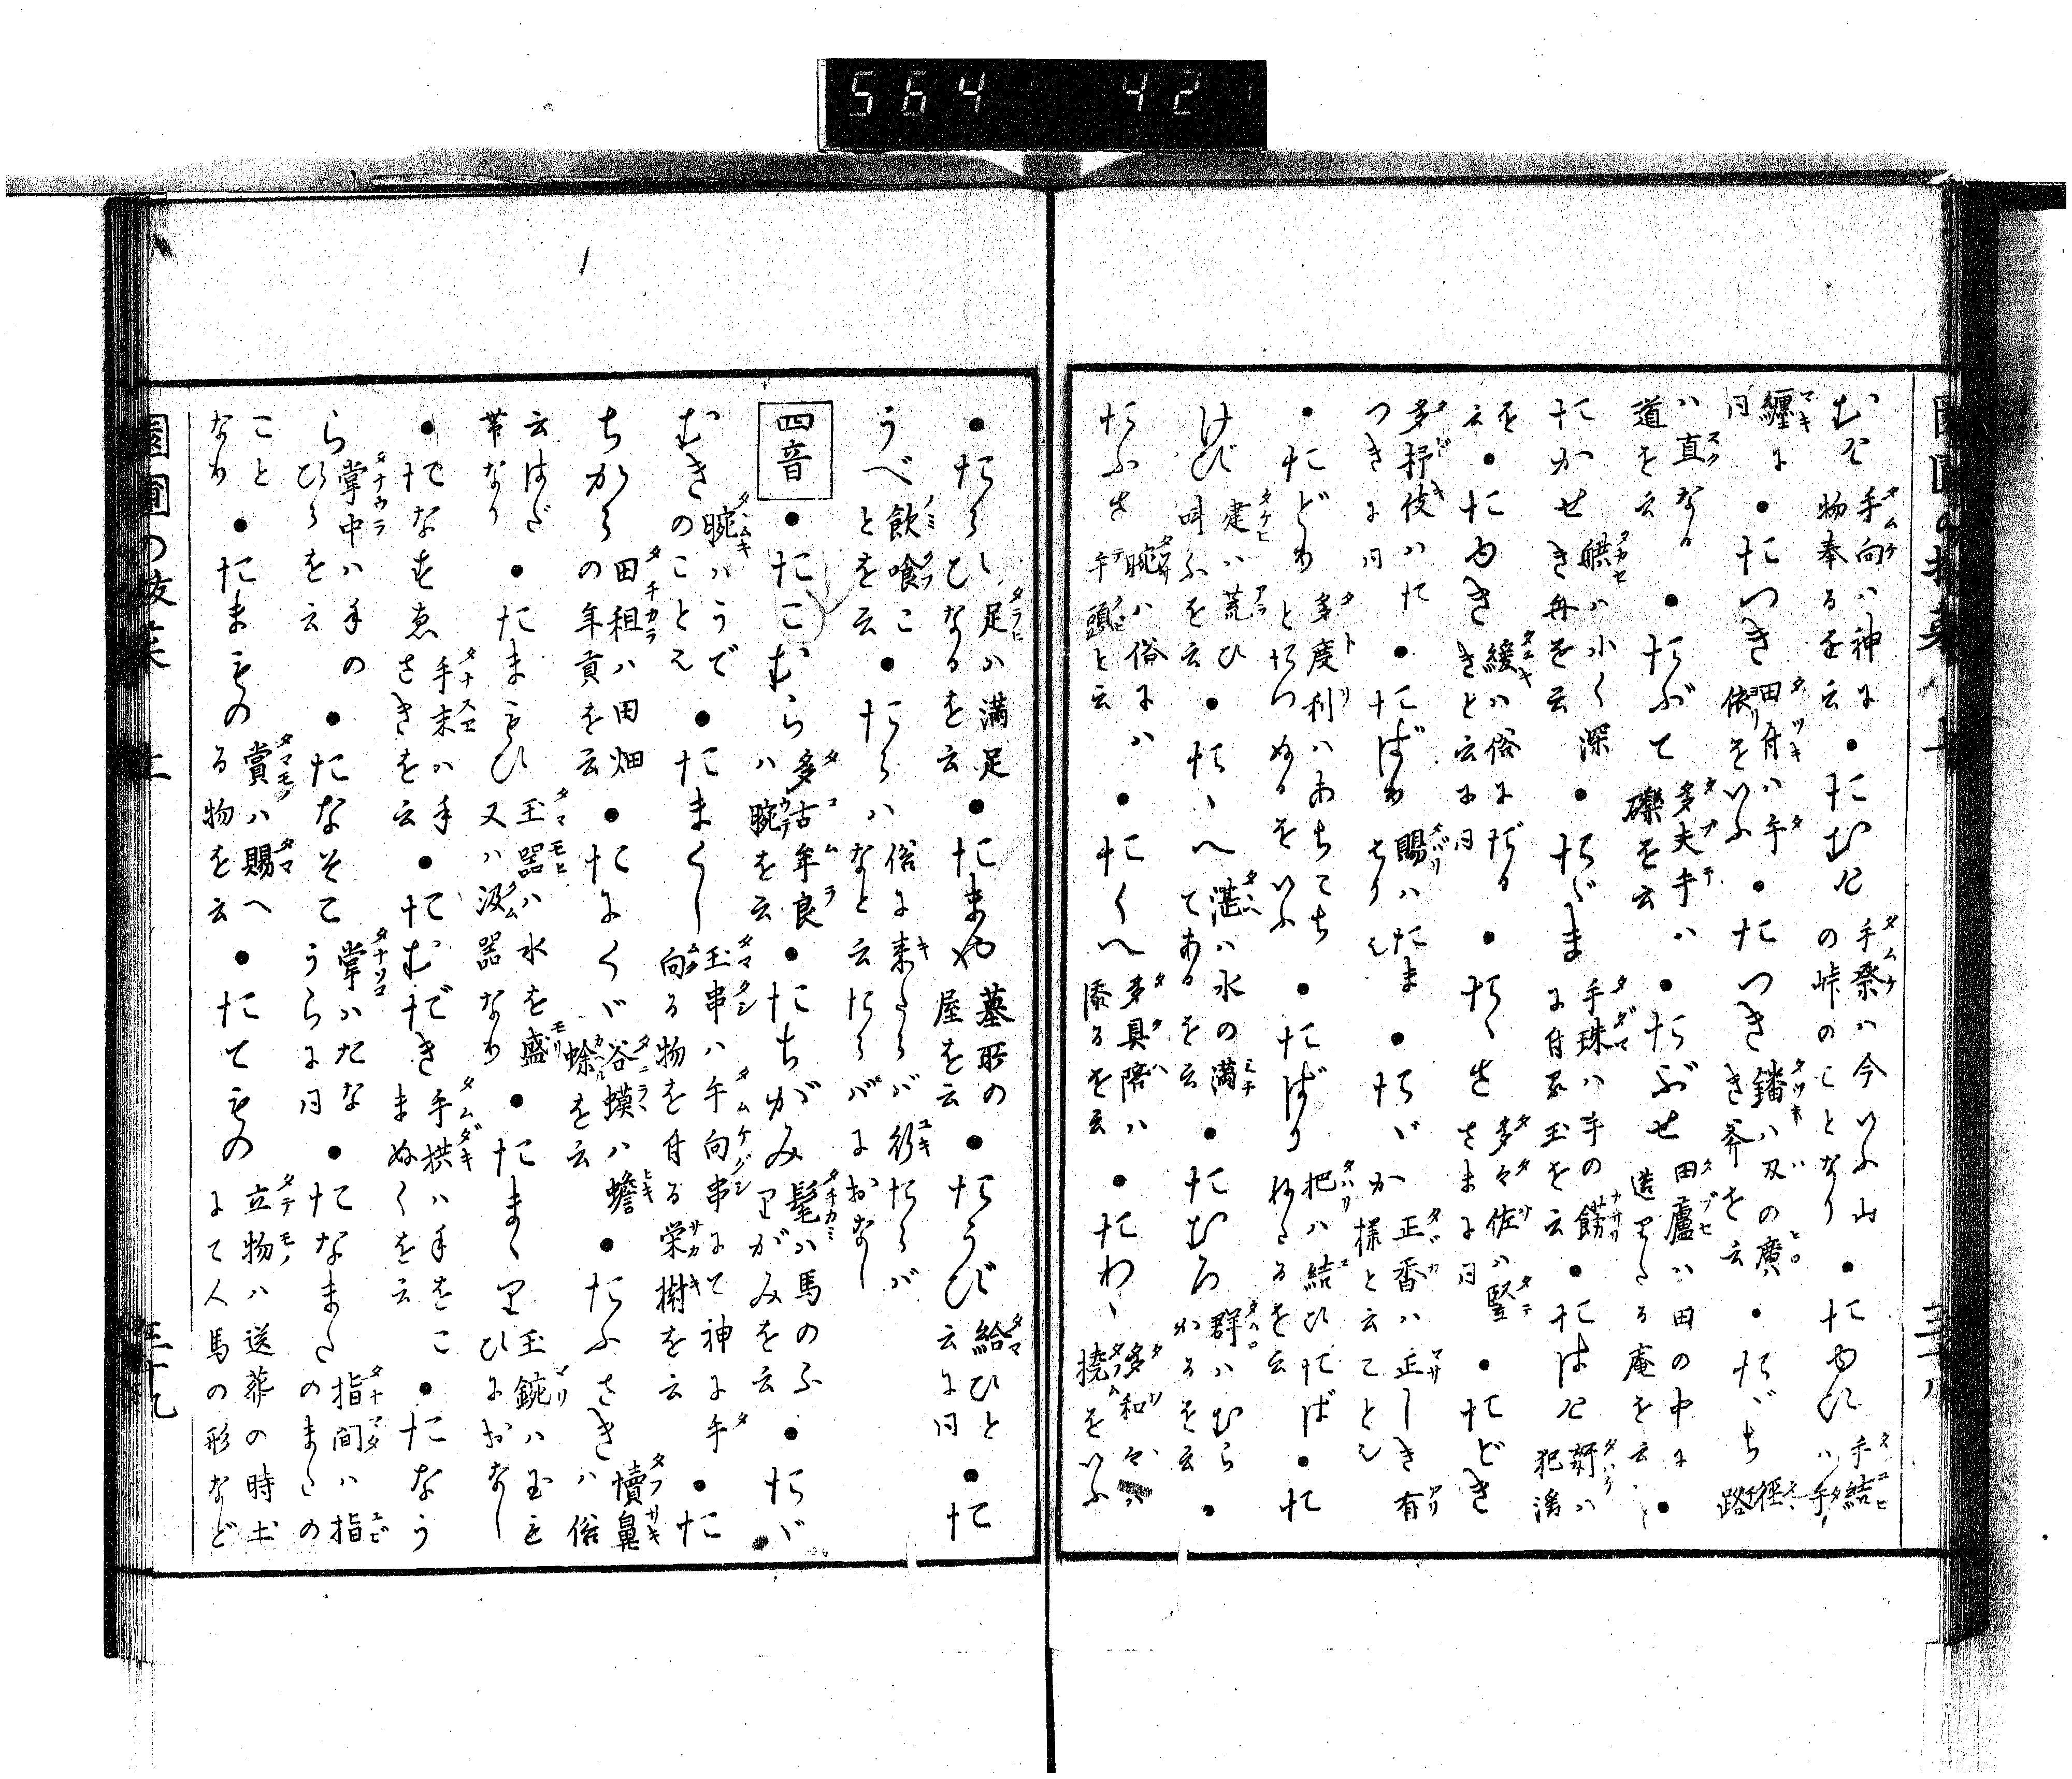 564 42
むけ 手向ハ神に物奉るを云 ●たむけ 手祭ハ今いふ山の峠のことなり ●たゆひ 手結ハ手
纏に同 ●たつき 田舟ハ手依をいふ ●たつき 鐇ハ刄の廣き斧を云 ●たゞち 徑路
ハ直なる道を云 ●たぶて 多夫手ハ礫を云 ●たぶせ 田廬ハ田の中に造りたる庵を云 ●
たかせ ハ小く深き舟を云 ●たゞま 手珠ハ手の餝に付る玉を云 ●たはけ 奸ハ犯淫
を云 ●たゆき 緩ハ俗にだるきと云に同 ●たゝさ 多々佐ハ竪さまに同 ●たどき
多杼伎ハたつきに同 ●たばり 賜ハたまもり也 ●たゞか 正香ハ正しき有様と云こと也
●たどり 多度利ハあちこちとたつぬるをいふ ●たばり 把ハ結ひたばねたるを云 ●た
けび 建ハ荒ひ叫ふを云 ●たゝへ 湛ハ水の満てあるを云 ●たむろ 群ハむらかるを云 ●
たぶさ 腕ハ俗に手頭と云ハ ●たくへ 多具陪ハ添るを云 ●たわゝ 多和々ハ撓をいふ
●たらひ 足ハ満足ひなるを云 ●たまや 墓所の屋を云 ●たうび 給ひと云に同 ●た
うべ 飲喰ことを云 ●たらハ 俗に来たらバ行たらバなと云たらバにおなし
四音 ●たこむら 多古牟良ハ腕を云 ●たちがみ 髦ハ馬のふりがみを云 ●たゞ
むき 腕ハうでのこと也 ●たまくし 玉串ハ手向串にて神に手向る物を付る栄樹を云 ●た
ちから 田租ハ田畑の年貢を云 ●たにくゞ 谷蟆ハ蟾蜍を云 ●たふさき 犢鼻ハ俗
云はだ帯なり ●たまもひ 玉器ハ水を盛又ハ汲器なり ●たまゝり 玉鋺ハ玉もひにおなし
●たなすゑ 手末ハ手さきを云 ●たむだき 手拱ハ手をこまぬくを云 ●たなう
ら 掌中ハ手のひらを云 ●たなそこ 掌ハたなうらに同 ●たなまた 指間ハ指のまたの
ことなり ●たまもの 賞ハ賜へる物を云 ●たてもの 立物ハ送葬の時土にて人馬の形など